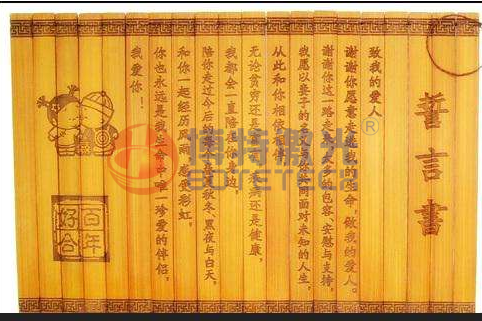 誓言書
致我的爱人
谢谢你愿意走进我的生命，做我的爱人。
谢谢你这一路走来太多的包容、安慰与支持，
我愿以妻子的名义与你共同面对未知的人生，
从此和你相依相伴，
无论贫穷还是还是健康，
我都会一直陪在你身边，
陪你走过今后的秋冬、黑夜与白天，
和你一起经历风雨，感受彩虹，
你也永远是我生命中唯一珍爱的伴侣，
我爱你！
百年
好合
博特激光®
BOTETECH